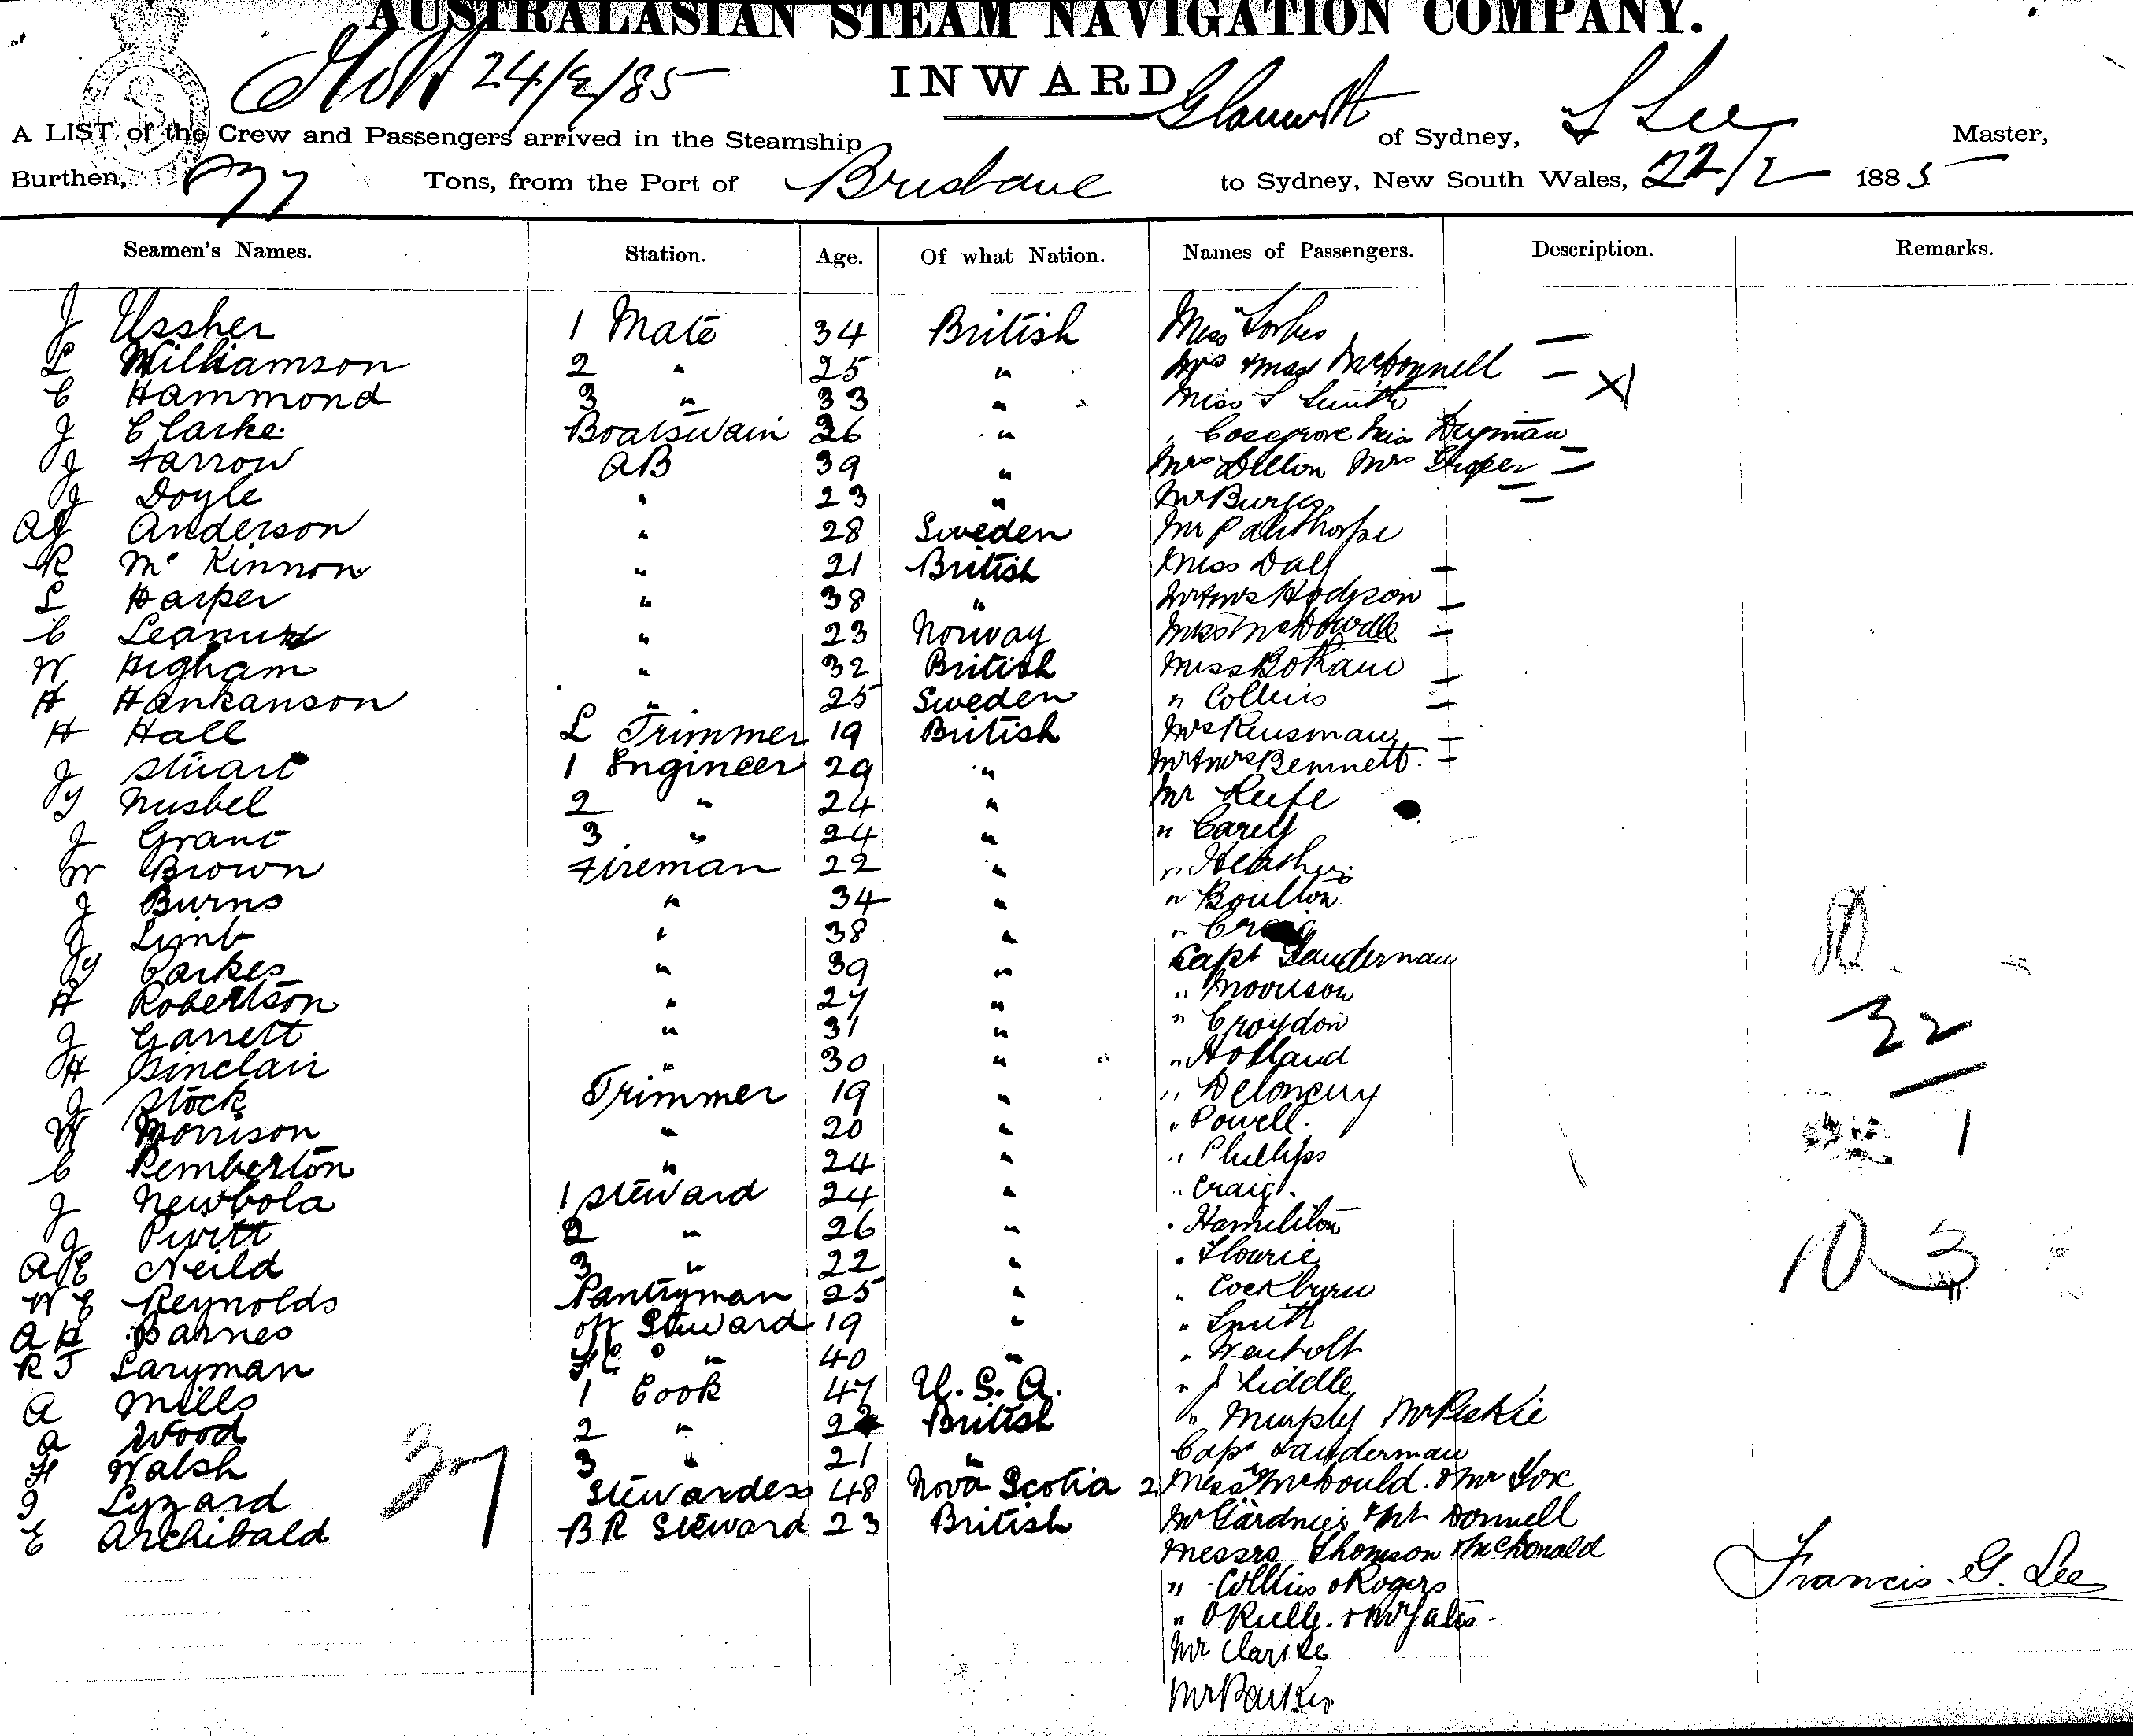 AUSTRALASIAN STEAM NAVIGATION COMPANY.
24/2/85
INWARD
A LIST of the Crew and Passengers arrived in the Steamship of Sydney, Lee Master,
Burthen, 877 Tons, from the Port of Brisbane to Sydney, New South Wales, 22/2 1885
Seamen's Names. Station. Age. Of what Nation. Names of Passengers. Description. Remarks.
J Ussher 1 Mate 34 British Miss Forbes —
L Williamson 2 " 25 " Mrs & Miss McDonnell — X
C Hammond 3 " 33 " Miss S Smith
J Clarke Boatswain 26 " " Cosegrove Miss
J Farrow AB 39 " Mrs Dillon Mrs —
J Doyle " 23 " Mr —
AJ Anderson " 28 Sweden Mr
R Mc Kinnon " 21 British Miss Daly —
L Harper " 38 " Mr & Mrs Hodgson —
C " 23 Norway Miss —
W Higham " 32 British Miss —
H Hankanson " 25 Sweden " Collins —
H Hall L Trimmer 19 British Mrs Kinsman —
J Stuart 1 Engineer 29 " Mr & Mrs Bennett —
JY Nusbel 2 " 24 " Mr Keefe
J Grant 3 " 24 " " Carey
W Brown Fireman 22 "
J Burns " 34 " " Boulton
J Limb " 38 " "
JY Parkes " 39 " Capt
H Robertson " 27 " " Morrison
J Garrett " 31 " " Croydon 32
H Sinclair " 30 " " Holland
J Stock Trimmer 19 " "
W Morrison " 20 " " Powell. 1
C Pemberton " 24 " " Phillips
J Newbola 1 Steward 24 " " Craig.
J Pwitt 2 " 26 " " Hamilton
AE Neild 3 " 22 " " 10 3
W E Reynolds Pantryman 25 " " Cockburn
A H Barnes off Steward 19 " " Smith
R J Laryman FC " " 40 "
A Mills 1 Cook 47 U.S.A. " J Liddle
A Wood 2 " British " Murphy Mr
H Walsh 3 " 21 " Capt Lauderman
J Lyzard Stewardess 48 Nova Scotia 2 Miss McGould. & Mr Fox
E Archibald 37 BR Steward 23 British Mr Gardner & Mr Donnell
Messrs Thomson & McDonald
" Collins & Rogers
" O'Reilly. & Mr Yates.
Mr Clarke
Mr Parker
Francis. G. Lee